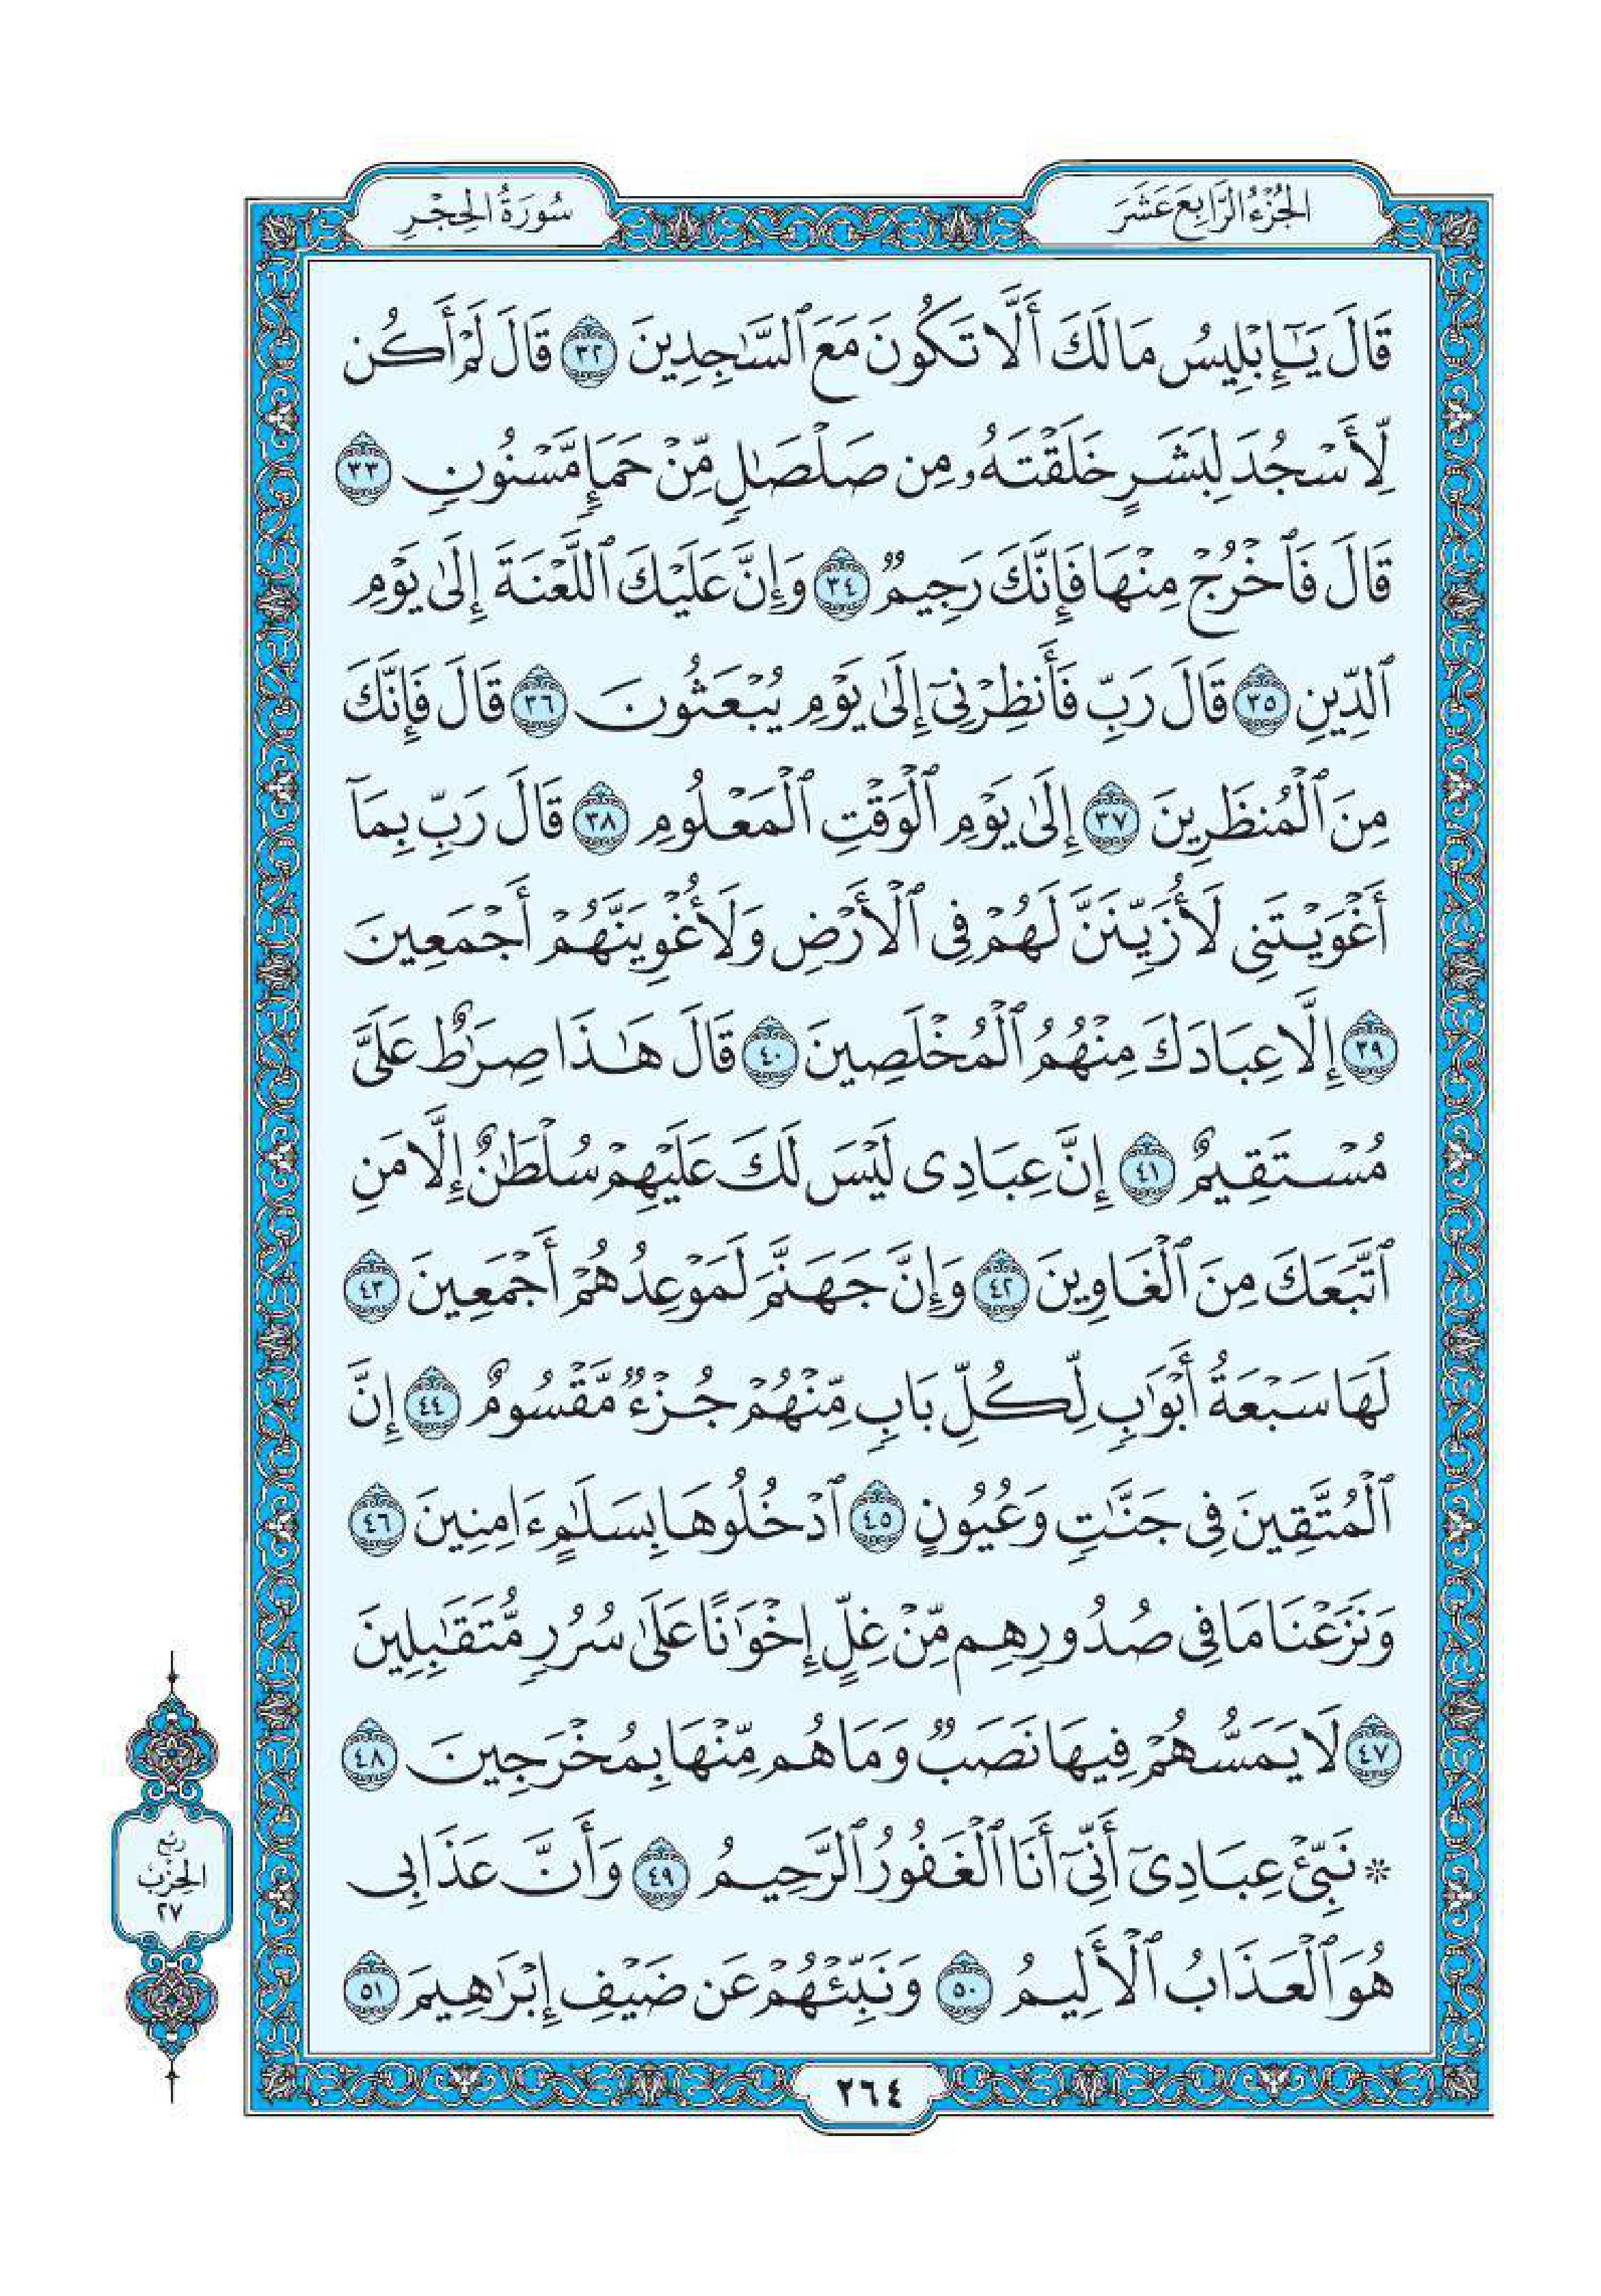 الجُزْءُ الرَّابِعَ عَشَرَ
سُورَةُ الحِجْرِ
قَالَ يَٰٓإِبْلِيسُ مَا لَكَ أَلَّا تَكُونَ مَعَ ٱلسَّٰجِدِينَ ٣٢ قَالَ لَمْ أَكُن
لِّأَسْجُدَ لِبَشَرٍ خَلَقْتَهُۥ مِن صَلْصَٰلٍ مِّنْ حَمَإٍ مَّسْنُونٍ ٣٣
قَالَ فَٱخْرُجْ مِنْهَا فَإِنَّكَ رَجِيمٌ ٣٤ وَإِنَّ عَلَيْكَ ٱللَّعْنَةَ إِلَىٰ يَوْمِ
ٱلدِّينِ ٣٥ قَالَ رَبِّ فَأَنظِرْنِىٓ إِلَىٰ يَوْمِ يُبْعَثُونَ ٣٦ قَالَ فَإِنَّكَ
مِنَ ٱلْمُنظَرِينَ ٣٧ إِلَىٰ يَوْمِ ٱلْوَقْتِ ٱلْمَعْلُومِ ٣٨ قَالَ رَبِّ بِمَآ
أَغْوَيْتَنِى لَأُزَيِّنَنَّ لَهُمْ فِى ٱلْأَرْضِ وَلَأُغْوِيَنَّهُمْ أَجْمَعِينَ
٣٩ إِلَّا عِبَادَكَ مِنْهُمُ ٱلْمُخْلَصِينَ ٤٠ قَالَ هَٰذَا صِرَٰطٌ عَلَىَّ
مُسْتَقِيمٌ ٤١ إِنَّ عِبَادِى لَيْسَ لَكَ عَلَيْهِمْ سُلْطَٰنٌ إِلَّا مَنِ
ٱتَّبَعَكَ مِنَ ٱلْغَاوِينَ ٤٢ وَإِنَّ جَهَنَّمَ لَمَوْعِدُهُمْ أَجْمَعِينَ ٤٣
لَهَا سَبْعَةُ أَبْوَٰبٍ لِّكُلِّ بَابٍ مِّنْهُمْ جُزْءٌ مَّقْسُومٌ ٤٤ إِنَّ
ٱلْمُتَّقِينَ فِى جَنَّٰتٍ وَعُيُونٍ ٤٥ ٱدْخُلُوهَا بِسَلَٰمٍ ءَامِنِينَ ٤٦
وَنَزَعْنَا مَا فِى صُدُورِهِم مِّنْ غِلٍّ إِخْوَٰنًا عَلَىٰ سُرُرٍ مُّتَقَٰبِلِينَ
٤٧ لَا يَمَسُّهُمْ فِيهَا نَصَبٌ وَمَا هُم مِّنْهَا بِمُخْرَجِينَ ٤٨
* نَبِّئْ عِبَادِىٓ أَنِّىٓ أَنَا ٱلْغَفُورُ ٱلرَّحِيمُ ٤٩ وَأَنَّ عَذَابِى
هُوَ ٱلْعَذَابُ ٱلْأَلِيمُ ٥٠ وَنَبِّئْهُمْ عَن ضَيْفِ إِبْرَٰهِيمَ ٥١
رُبْع
الحِزْب
٢٧
٢٦٤